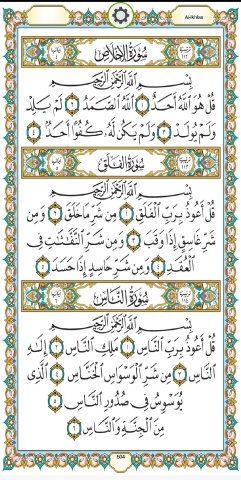 Al-Ikhlas
سُورَةُ الإِخْلَاصِ
بِسْمِ اللَّهِ الرَّحْمَٰنِ الرَّحِيمِ
قُلْ هُوَ اللَّهُ أَحَدٌ ١ اللَّهُ الصَّمَدُ ٢ لَمْ يَلِدْ
وَلَمْ يُولَدْ ٣ وَلَمْ يَكُن لَّهُ كُفُوًا أَحَدٌ ٤
سُورَةُ الفَلَقِ
بِسْمِ اللَّهِ الرَّحْمَٰنِ الرَّحِيمِ
قُلْ أَعُوذُ بِرَبِّ الْفَلَقِ ١ مِن شَرِّ مَا خَلَقَ ٢ وَمِن
شَرِّ غَاسِقٍ إِذَا وَقَبَ ٣ وَمِن شَرِّ النَّفَّاثَاتِ فِي
الْعُقَدِ ٤ وَمِن شَرِّ حَاسِدٍ إِذَا حَسَدَ ٥
سُورَةُ النَّاسِ
بِسْمِ اللَّهِ الرَّحْمَٰنِ الرَّحِيمِ
قُلْ أَعُوذُ بِرَبِّ النَّاسِ ١ مَلِكِ النَّاسِ ٢ إِلَٰهِ
النَّاسِ ٣ مِن شَرِّ الْوَسْوَاسِ الْخَنَّاسِ ٤ الَّذِي
يُوَسْوِسُ فِي صُدُورِ النَّاسِ ٥
مِنَ الْجِنَّةِ وَالنَّاسِ ٦
604